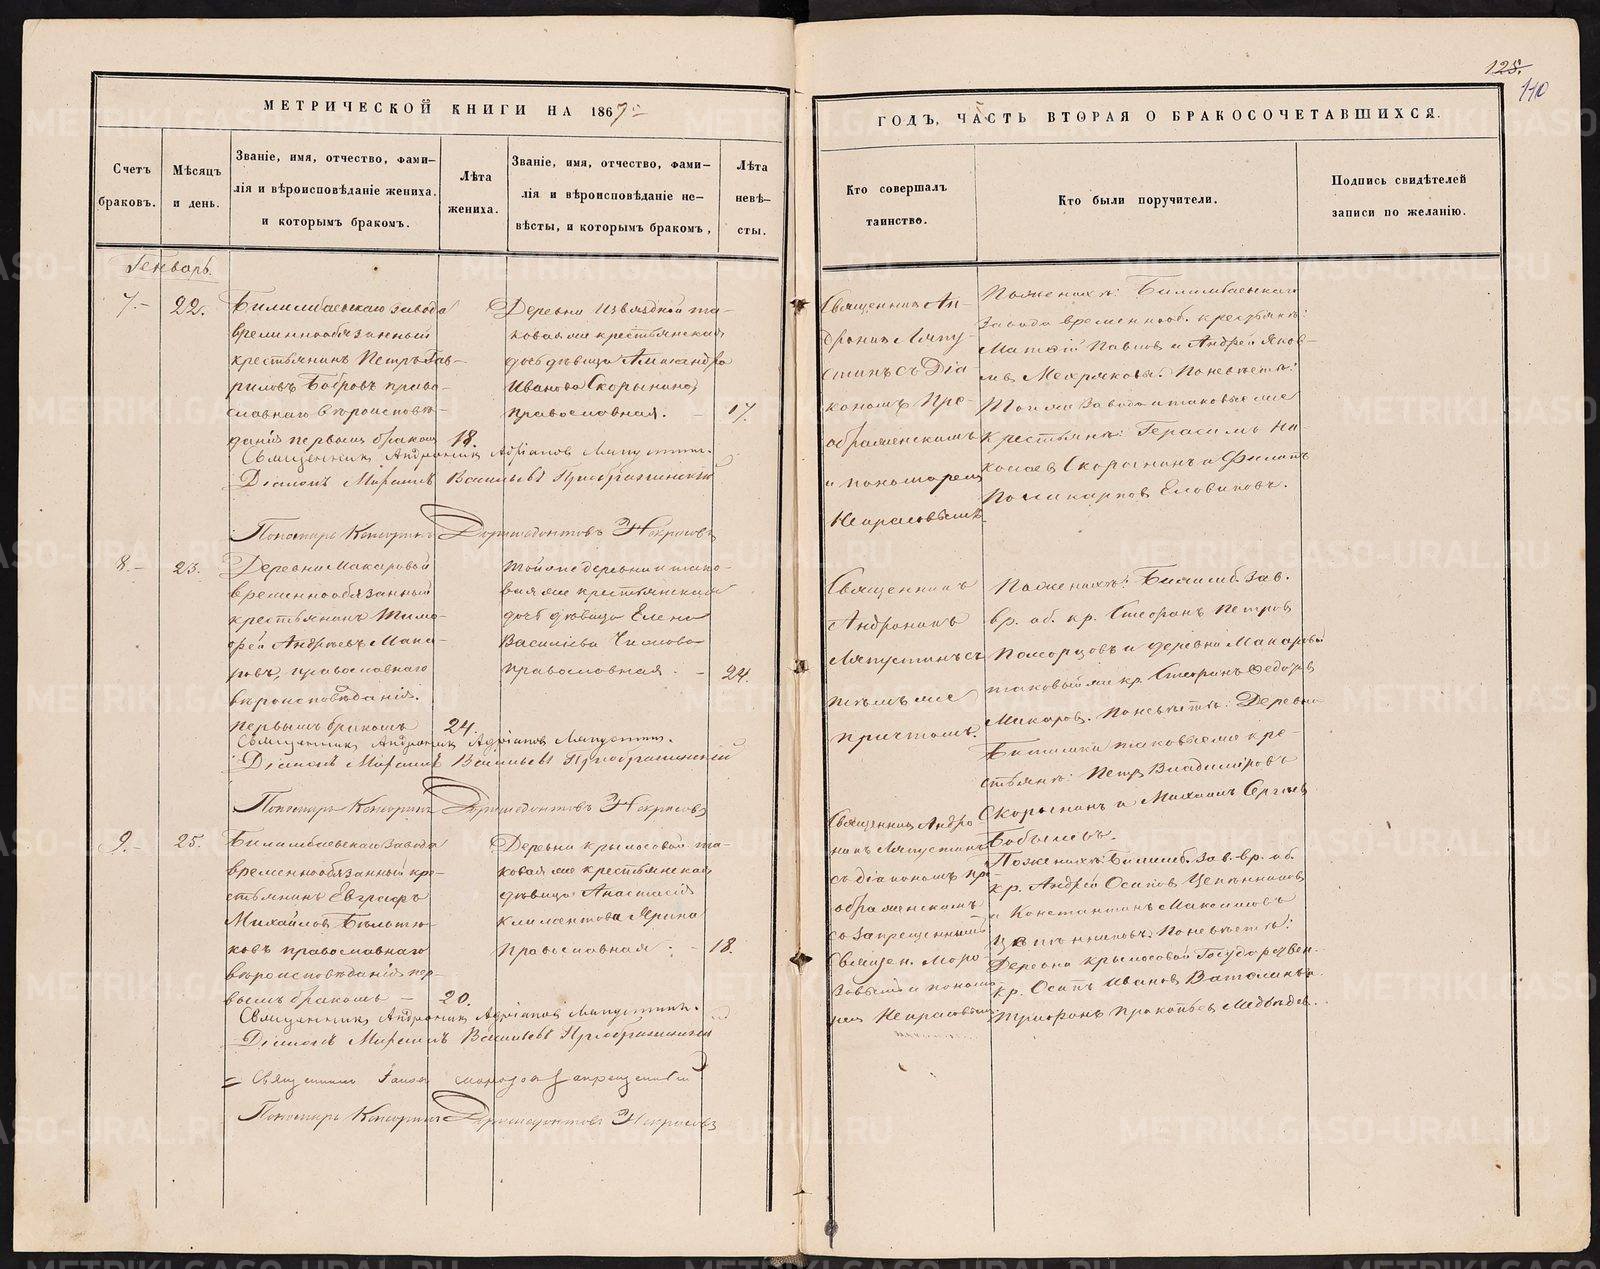 125.
110
МЕТРИЧЕСКОЙ КНИГИ НА 1867
ГОДЪ, ЧАСТЬ ВТОРАЯ О БРАКОСОЧЕТАВШИХСЯ.
Счетъ
браковъ.
Мѣсяцъ
и день.
Званіе, имя, отчество, фами-
лія и вѣроисповѣданіе жениха,
и которымъ бракомъ.
Лѣта
жениха.
Званіе, имя, отчество, фами-
лія и вѣроисповѣданіе не-
вѣсты, и которымъ бракомъ,
Лѣта
невѣ-
сты.
Кто совершалъ
таинство.
Кто были поручители.
Подпись свидѣтелей
записи по желанію.
Генварь.
7.-
22.
Билимбаевскаго завода
временнообязанный
крестьянинъ Петръ Гав-
риловъ Бобровъ право-
славнаго вѣроисповѣ-
данія первымъ бракомъ
18.
Деревни Извѣздной та-
коваго же крестьянская
дочь дѣвица Александра
Иванова Скорынина,
православная.
17.
Священникъ Ан-
дроникъ Ляпу-
стинъ съ Діа-
кономъ Пре-
ображенскимъ
и пономаремъ
Некрасовымъ.
По женихѣ: Билимбаевскаго
завода временнооб. крестьян:
Матѳій Павловъ и Андрей Яков-
левъ По невѣстѣ:
Того же завода и таковые же
крестьян: Герасимъ Ни-
колаевъ Скорынинъ и Филипъ
Поликарповъ Еловиковъ.
Священникъ Андроникъ Адріановъ Ляпустинъ.
Діаконъ Васильевъ Преображенскій
Пономарь Доримедонтовъ Некрасовъ
8.-
23.
Деревни Макаровой
временнообязанный
крестьянинъ Тимо-
фей Андреевъ Мака-
ровъ, православнаго
вѣроисповѣданія.
первымъ бракомъ
24.
той же деревни и тако-
вая же крестьянская
дочь дѣвица Елена
Васильева Чижова
православная.
24.
Священникъ
Андроникъ
Ляпустинъ съ
тѣмъ же
причтомъ.
По женихѣ: Билимб. зав.
вр. об. кр. Стефанъ Петровъ
Поморцовъ и деревни Макаровой
таковый же кр. Стефанъ Ѳедоровъ
Макаровъ. По невѣстѣ: Деревни
таковые же кре-
стьян: Петръ Владиміровъ
Скорынинъ и Михаилъ Сергѣевъ
Бобылевъ.
Священникъ Андроникъ Адріановъ Ляпустинъ.
Діаконъ Васильевъ Преображенскій
Пономарь Доримедонтовъ Некрасовъ
9.-
25.
Билимбаевскаго завода
временнообязанный кре-
стьянинъ Евграфъ
Михайловъ Бѣльтю-
ковъ православнаго
вѣроисповѣданія пер-
вымъ бракомъ
20.
Деревни Крылосовой та-
ковая же крестьянская
дѣвица Анастасія
Климантова Ярина
Православная.
18.
Священникъ Андро
никъ Ляпустинъ
съ діакономъ Пре-
ображенскимъ
съ запрещеннымъ
Священ. Моро
зовымъ и понома-
ремъ Некрасовымъ
По женихѣ: Билимб. зав. вр. об.
кр. Андрей Осиповъ Цепенниковъ
и Константинъ Максимовъ
По невѣстѣ:
Деревни Крылосовой Государствен-
кр. Осипъ Ивановъ Ваталинъ и
Трифонъ Прокопьевъ Медвѣдевъ.
Священникъ Андроникъ Адріановъ Ляпустинъ.
Діаконъ Васильевъ Преображенскій
Священникъ Морозовъ запрещенный
Пономарь Доримедонтовъ Некрасовъ